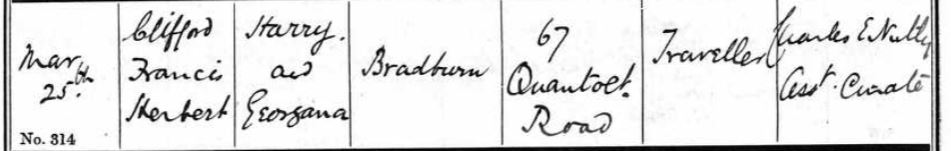 Mar.
25th.
No. 314
Clifford
Francis
Herbert
Harry.
and
Georgana
Bradburn
67
Quantock.
Road
Traveller
Charles E Nutty
Asst. Curate